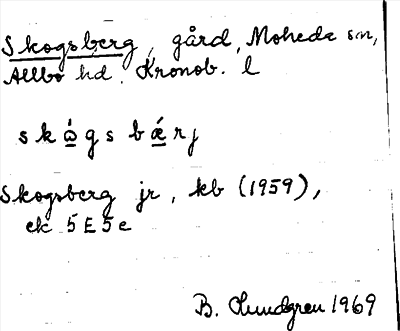 Skogsberg, gård, Moheda sn,
Allbo hd. Kronob. l
skώ̲gsbǽ̲rj
Skogsberg jr, kb (1959),
ek 5E5e
B. Lundgren 1969